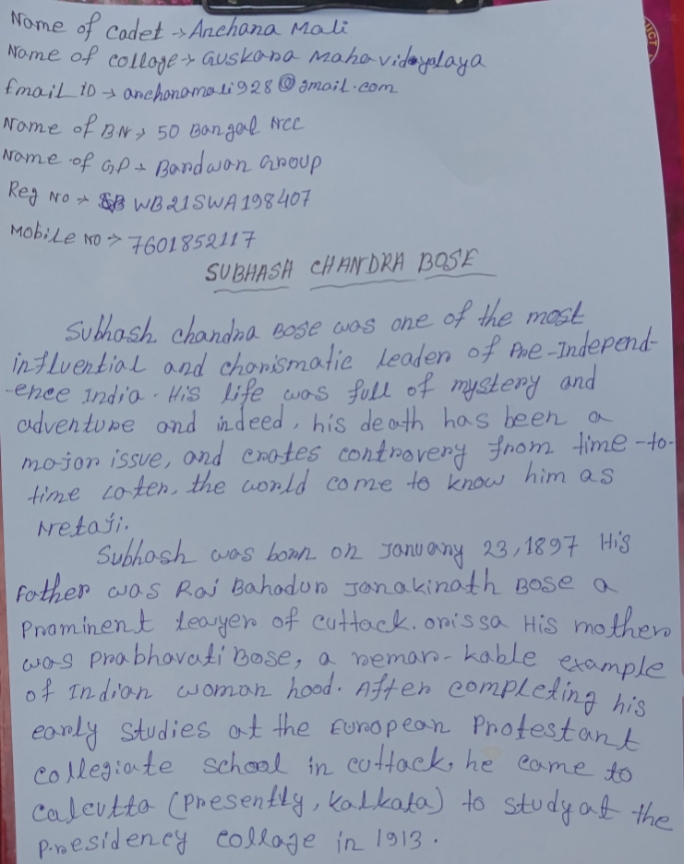 Name of cadet → Anchana Mali
Name of collage → Guskara Mahavidyalaya
Email ID → anchanamali928@gmail.com
Name of BN → 50 Bangal NCC
Name of GP → Bardwan Group
Reg No → WB21SWA198407
Mobile NO → 7601852117
SUBHASH CHANDRA BOSE
Subhash chandra Bose was one of the most
influential and charismatic leader of Pre-Independ-
-ence India. His life was full of mystery and
adventure and indeed, his death has been a
major issue, and crates controvery from time-to-
time later, the world come to know him as
Netaji.
Subhash was born on January 23,1897 His
Father was Rai Bahadur Janakinath Bose a
Prominent leayer of cuttack. orissa His mother
was Prabhavati Bose, a remar-kable example
of Indian woman hood. After completing his
early studies at the European Protestant
collegiate school in cuttack, he came to
Calcutta (Presently, Kalkata) to study at the
Presidency collage in 1913.